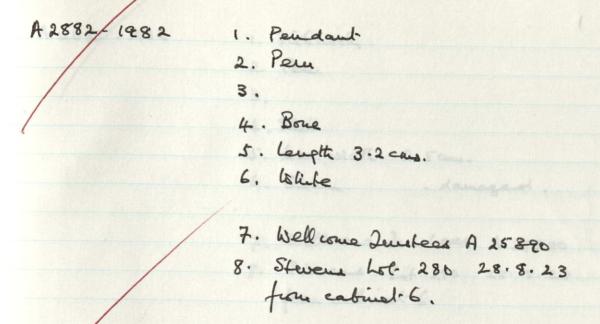 A 2882-1982 1. Pendant
2. Peru
3.
4. Bone
5. Length 3.2 cms.
6. White
7. Wellcome Trustees A 25890
8. Stevens Lot 280 28.8.23
from cabinet 6.